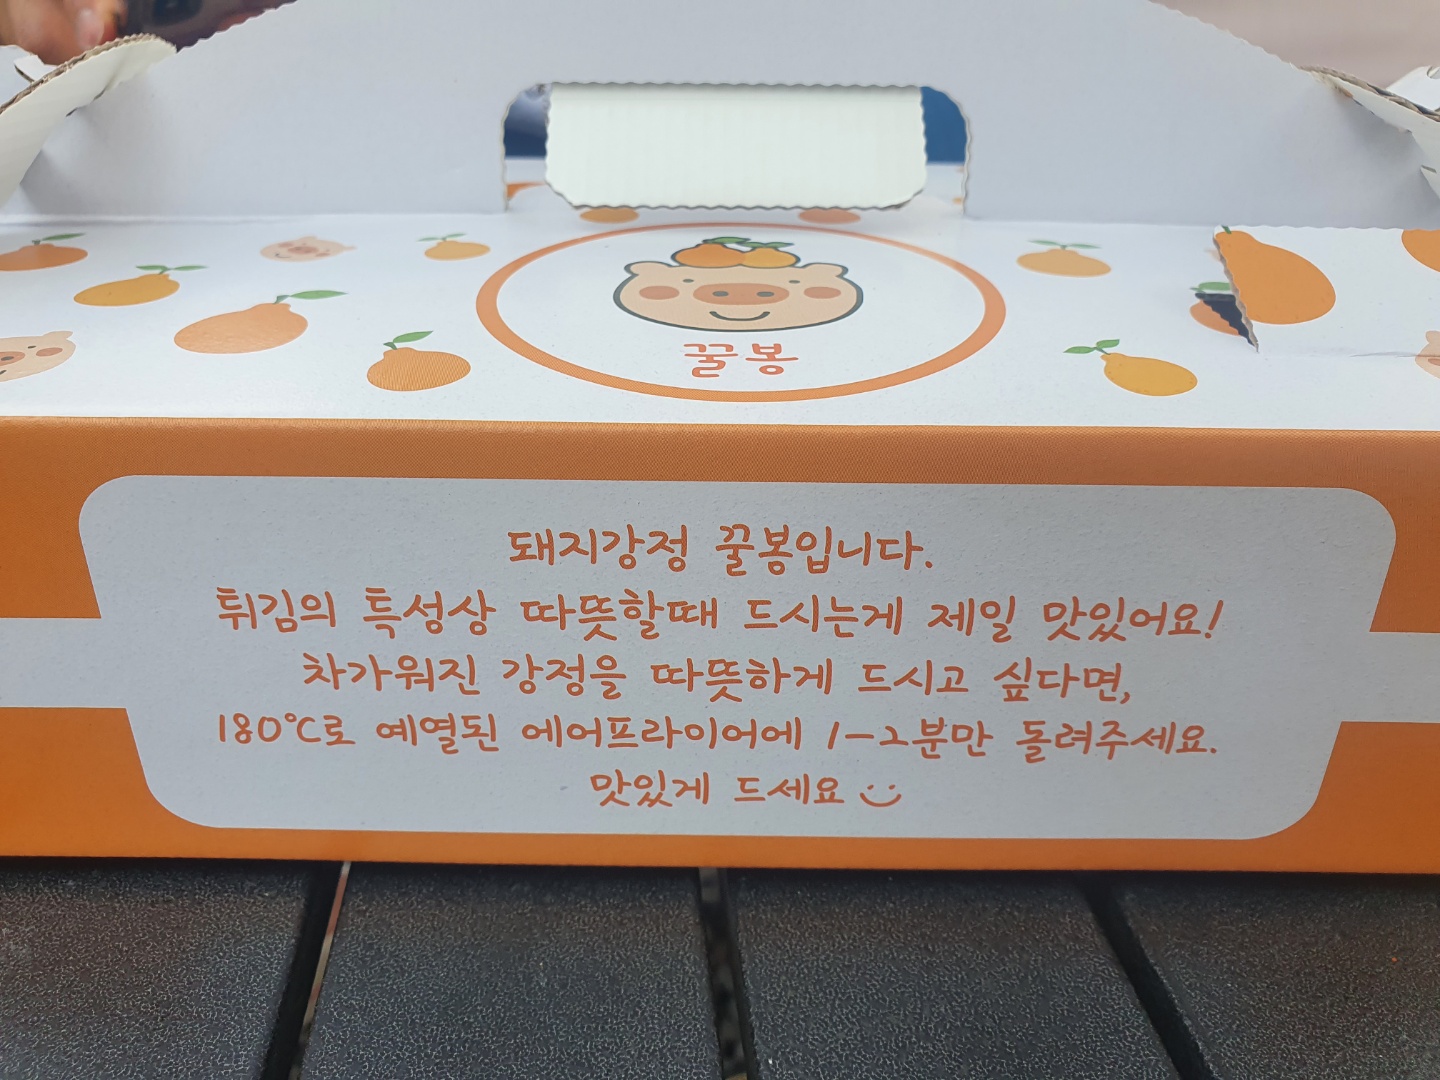 꿀봉
돼지강정 꿀봉입니다.
튀김의 특성상 따뜻할때 드시는게 제일 맛있어요!
차가워진 강정을 따뜻하게 드시고 싶다면,
180℃로 예열된 에어프라이어에 1-2분만 돌려주세요.
맛있게 드세요